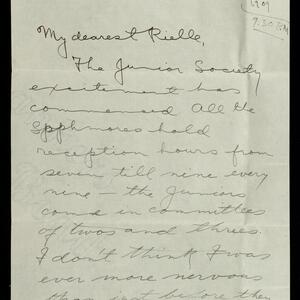 1909
7.30 P.M.
My dearest Rielle,
The Junior Society
excitement has
commenced All the
Spphmores hold
reception hours from
seven till nine every
nine – the Juniors
come in committees
of twos and threes.
I don't think I was
ever more nervous
than just before they